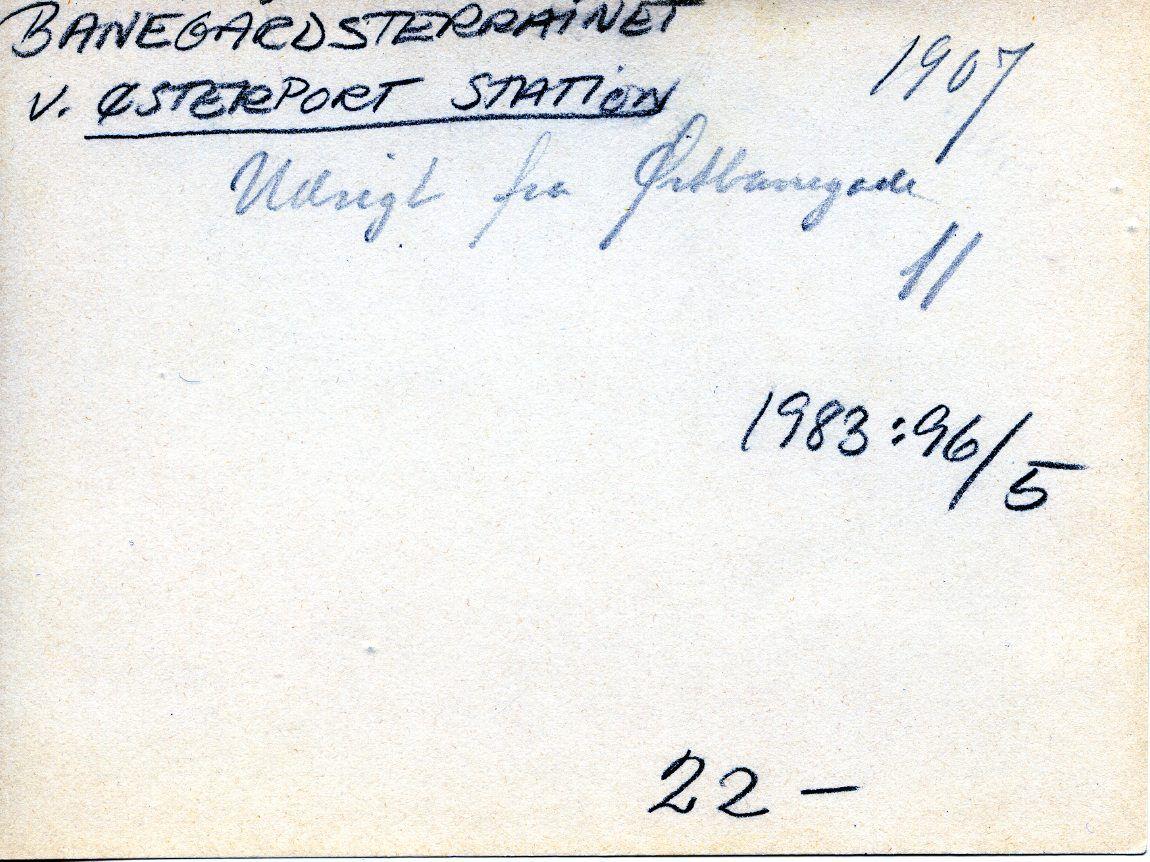 BANEGÅRDSTERRAINET
1907
v. ØSTERPORT STATION
Udsigt fra Østbanegade
11
1983:96/5
22 —